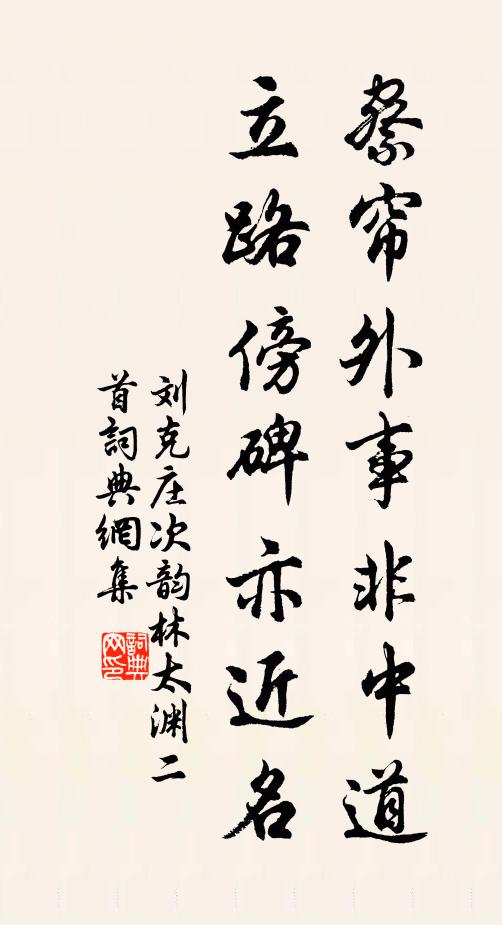 察帘外事非中道
立路傍碑亦近名
刘克庄次韵林太渊二
首詞典網集
詞典
网印